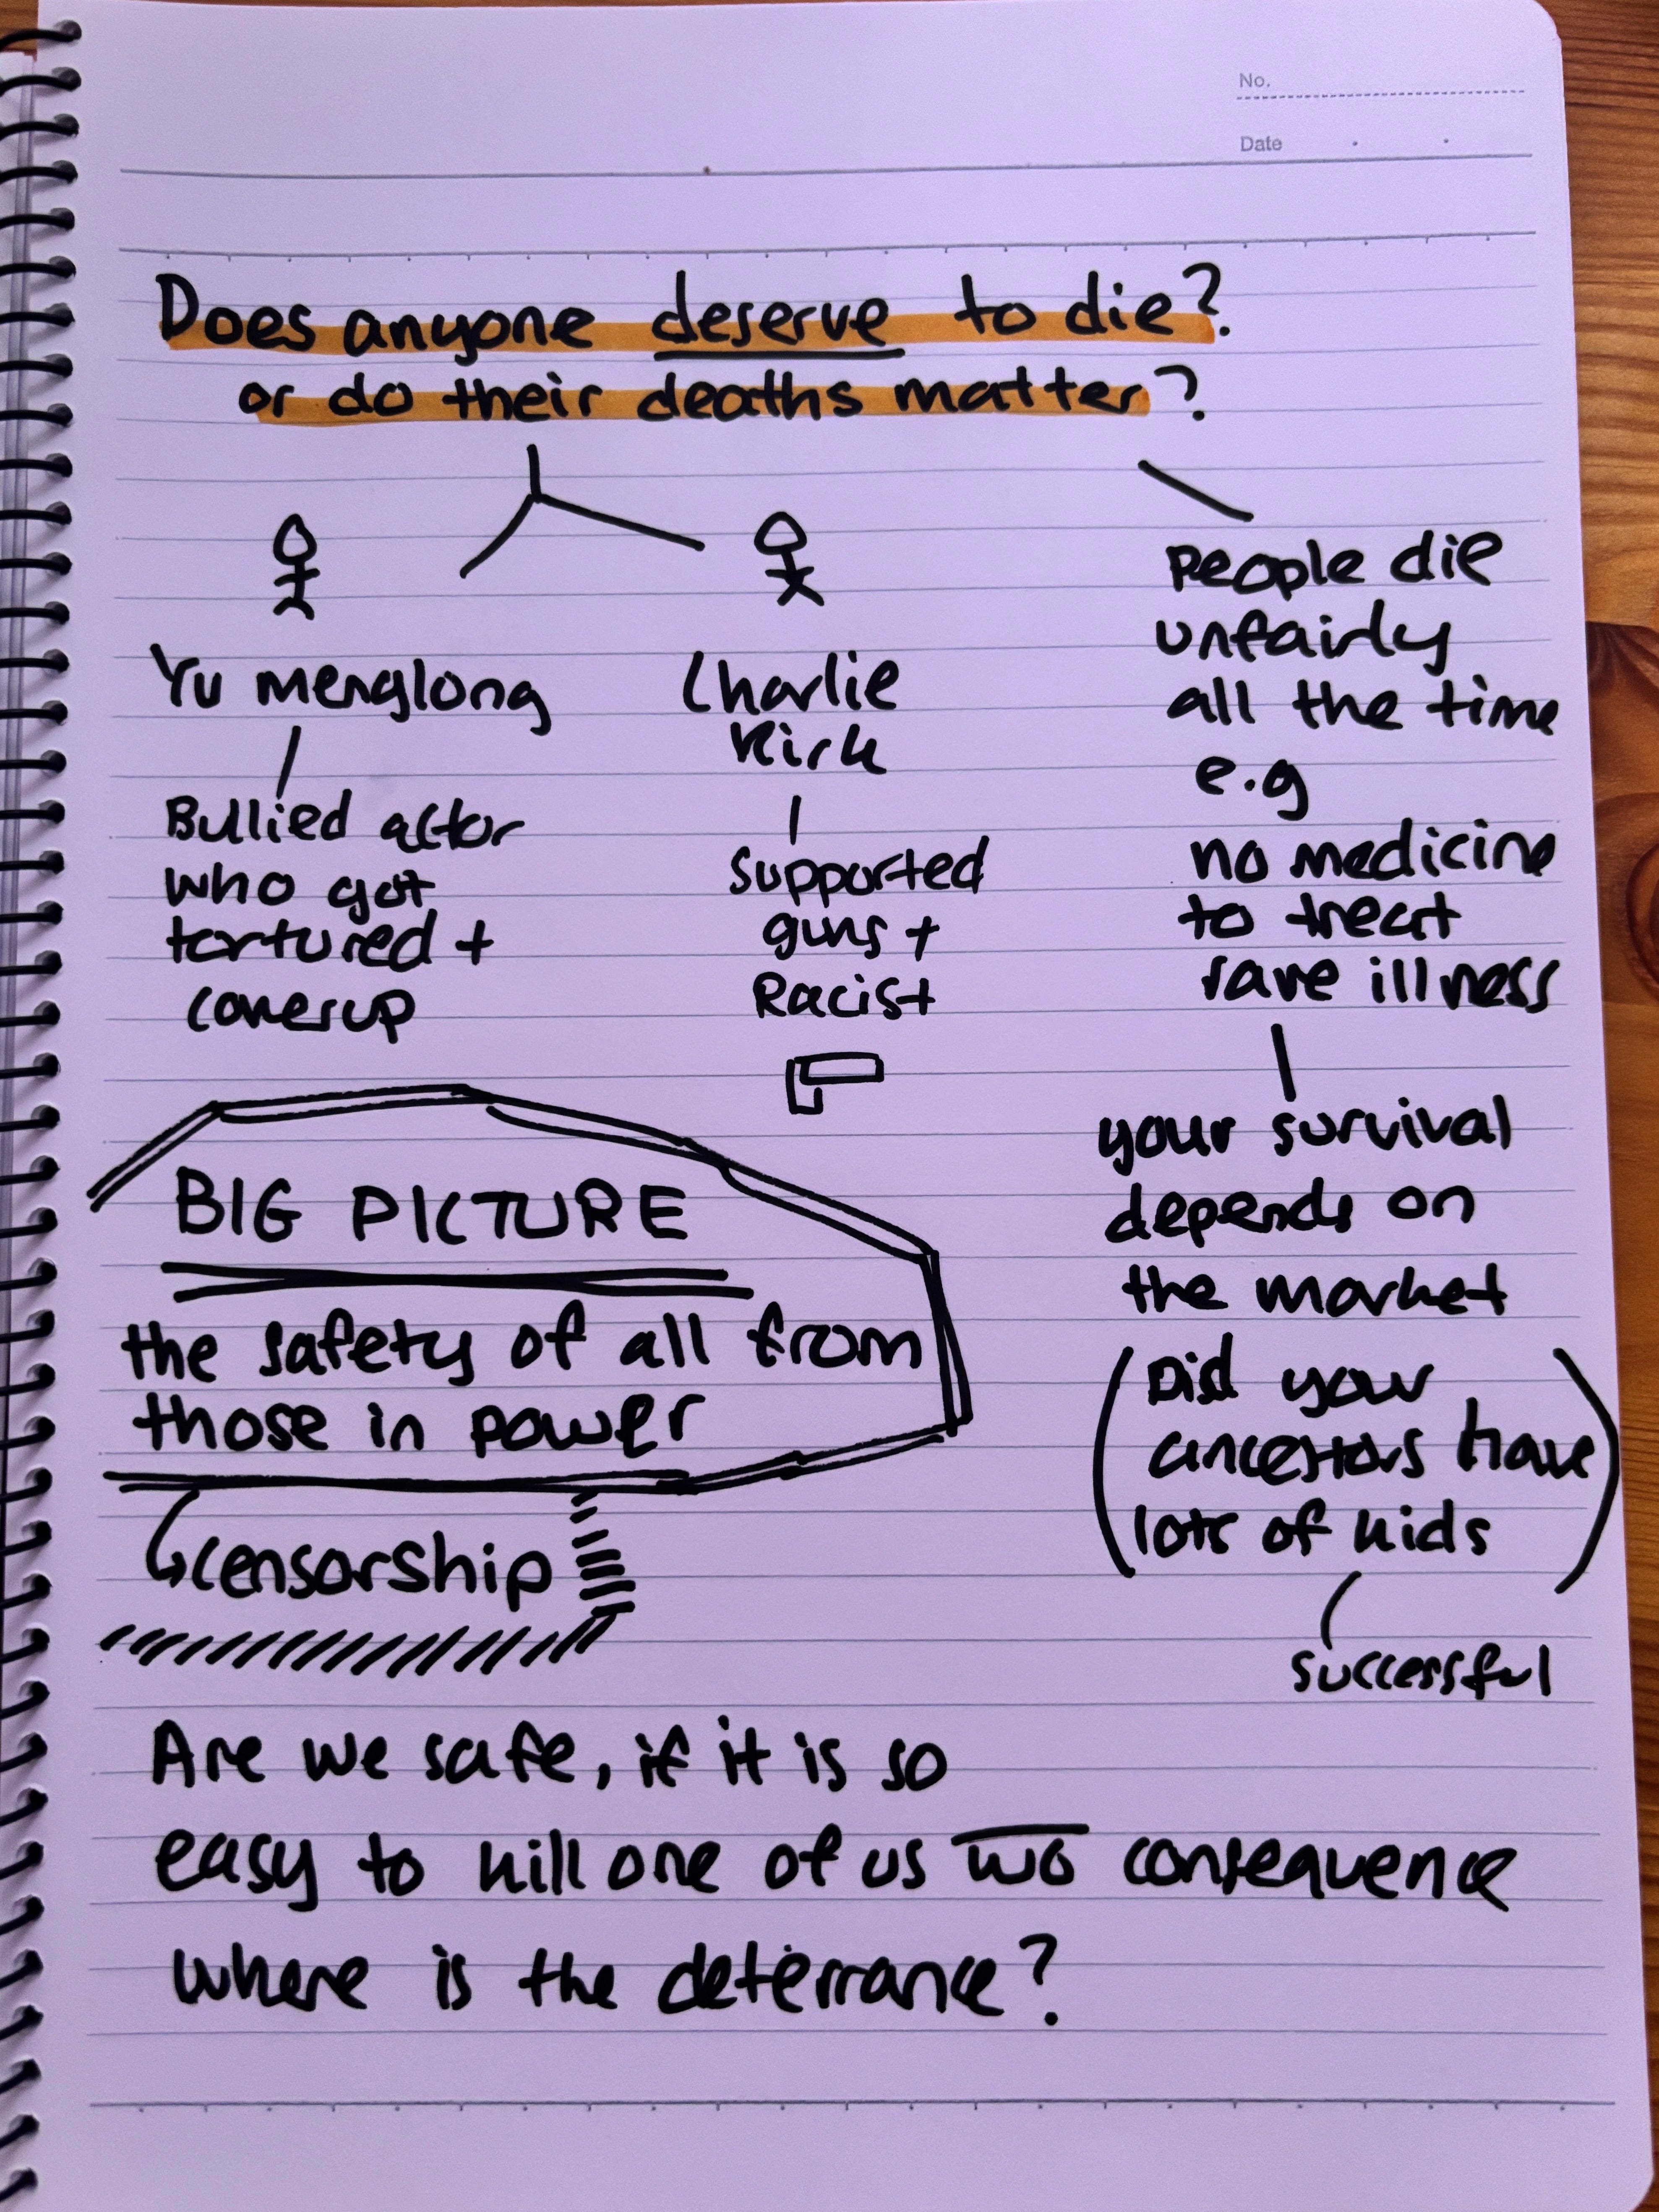 No.
Date
Does anyone deserve to die?
or do their deaths matter?
Yu menglong
Bullied actor
who got
tortured +
coverup
Charlie
Kirk
supported
guns +
Racist
People die
unfairly
all the time
e.g
no medicine
to treat
rare illness
your survival
depends on
the market
(Did your
ancestors have
lots of kids)
successful
BIG PICTURE
the safety of all from
those in power
censorship
Are we safe, if it is so
easy to kill one of us w/o consequence
where is the deterrance?